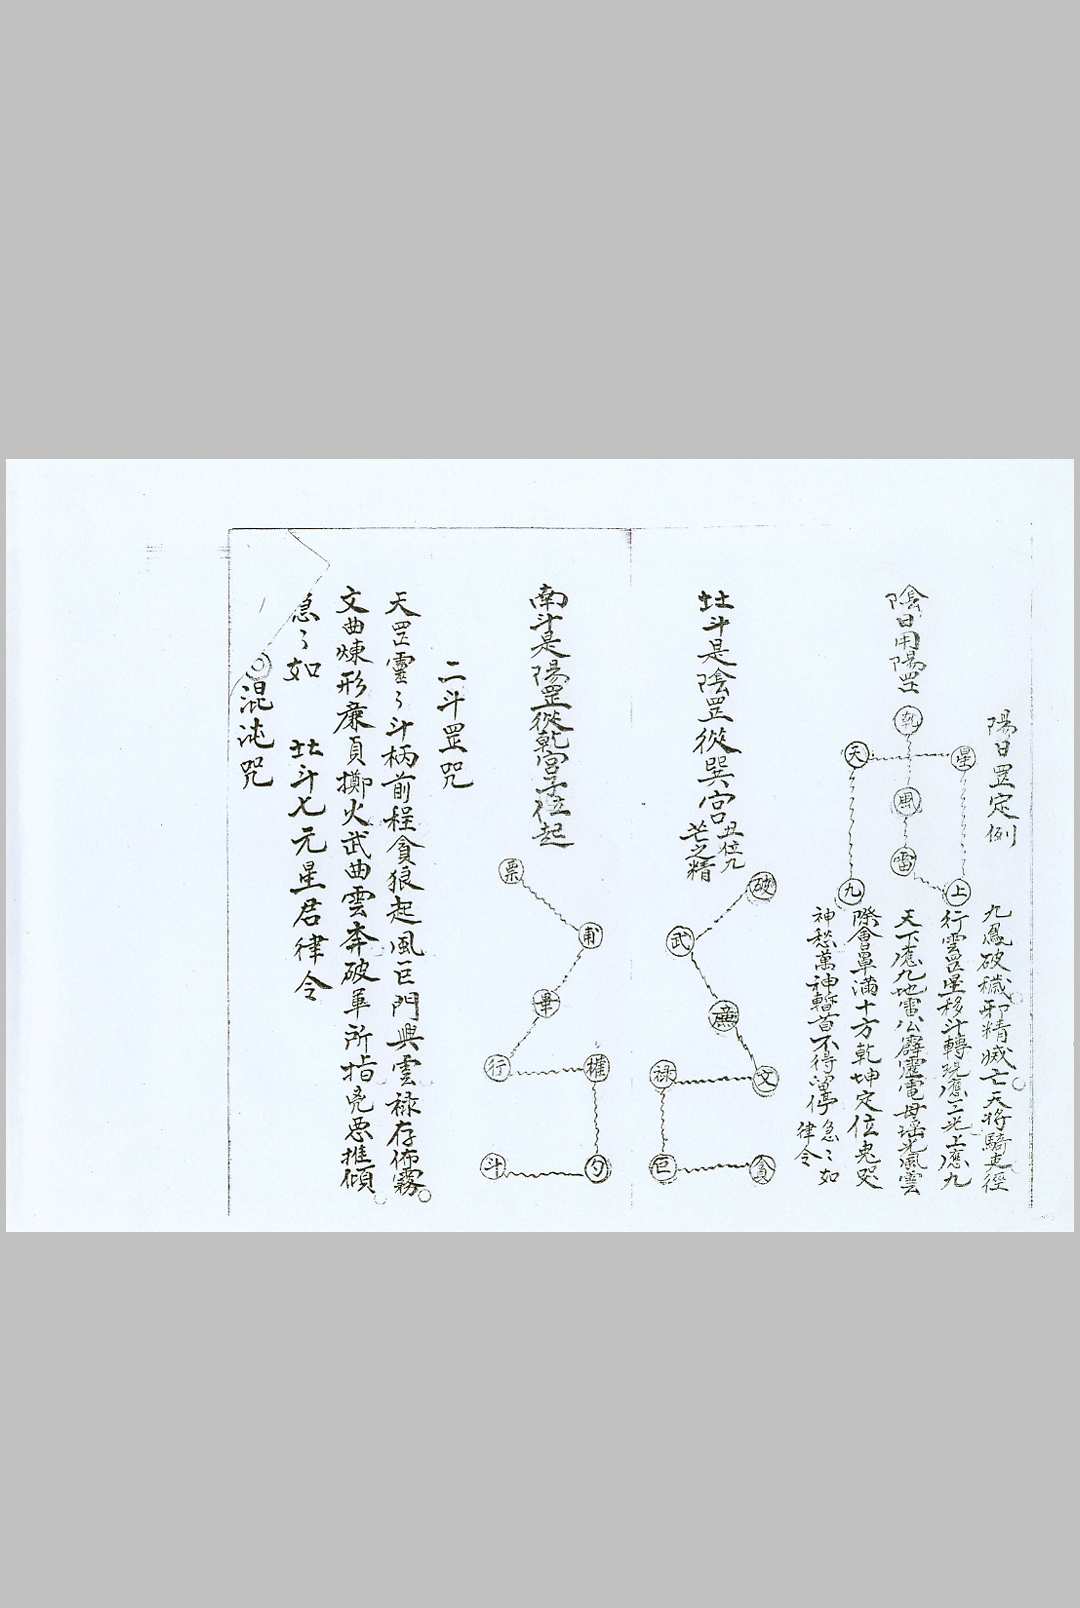 陽日罡定例
九鳳破穢邪精滅亡天將騎吏徑
行雲罡星移斗轉現應三光上應九
天下應九地雷公霹靂電母瑤光風雲
際會罩滿十方乾坤定位鬼哭
神愁萬神暫首不得留停急〻如
律令
陰日用陽罡
乾
星
天
風
雷
上
九
北斗是陰罡從巽宮丑位九
芒之精
破
武
廉
文
祿
巨
貪
南斗是陽罡從乾宮子位起
票
甫
畢
行
權
勺
斗
二斗罡咒
天罡靈〻斗柄前程貪狼起風巨門興雲祿存佈霧
文曲煉形廉貞擲火武曲雲奔破軍所指兇惡摧傾
急〻如 北斗七元星君律令
混沌咒